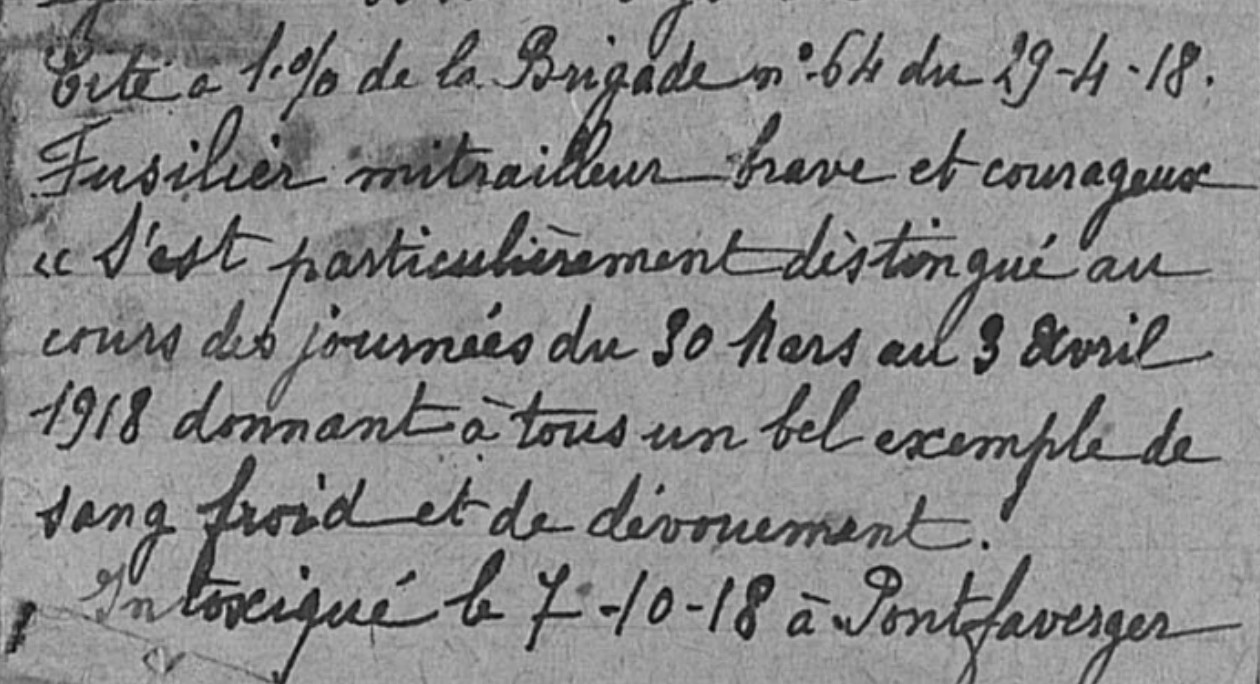 Cité à l'o/o de la Brigade n° 64 du 29-4-18.
Fusilier mitrailleur brave et courageux
« S'est particulièrement distingué au
cours des journées du 30 Mars au 3 Avril
1918 donnant à tous un bel exemple de
sang froid et de dévouement.
Intoxiqué le 7-10-18 à Pontfaverger